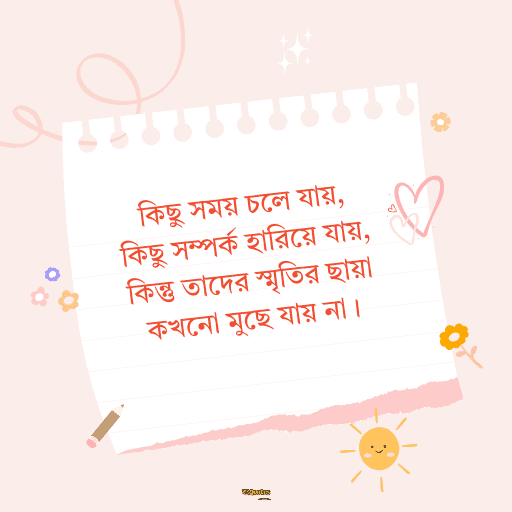 কিছু সময় চলে যায়,
কিছু সম্পর্ক হারিয়ে যায়,
কিন্তু তাদের স্মৃতির ছায়া
কখনো মুছে যায় না।